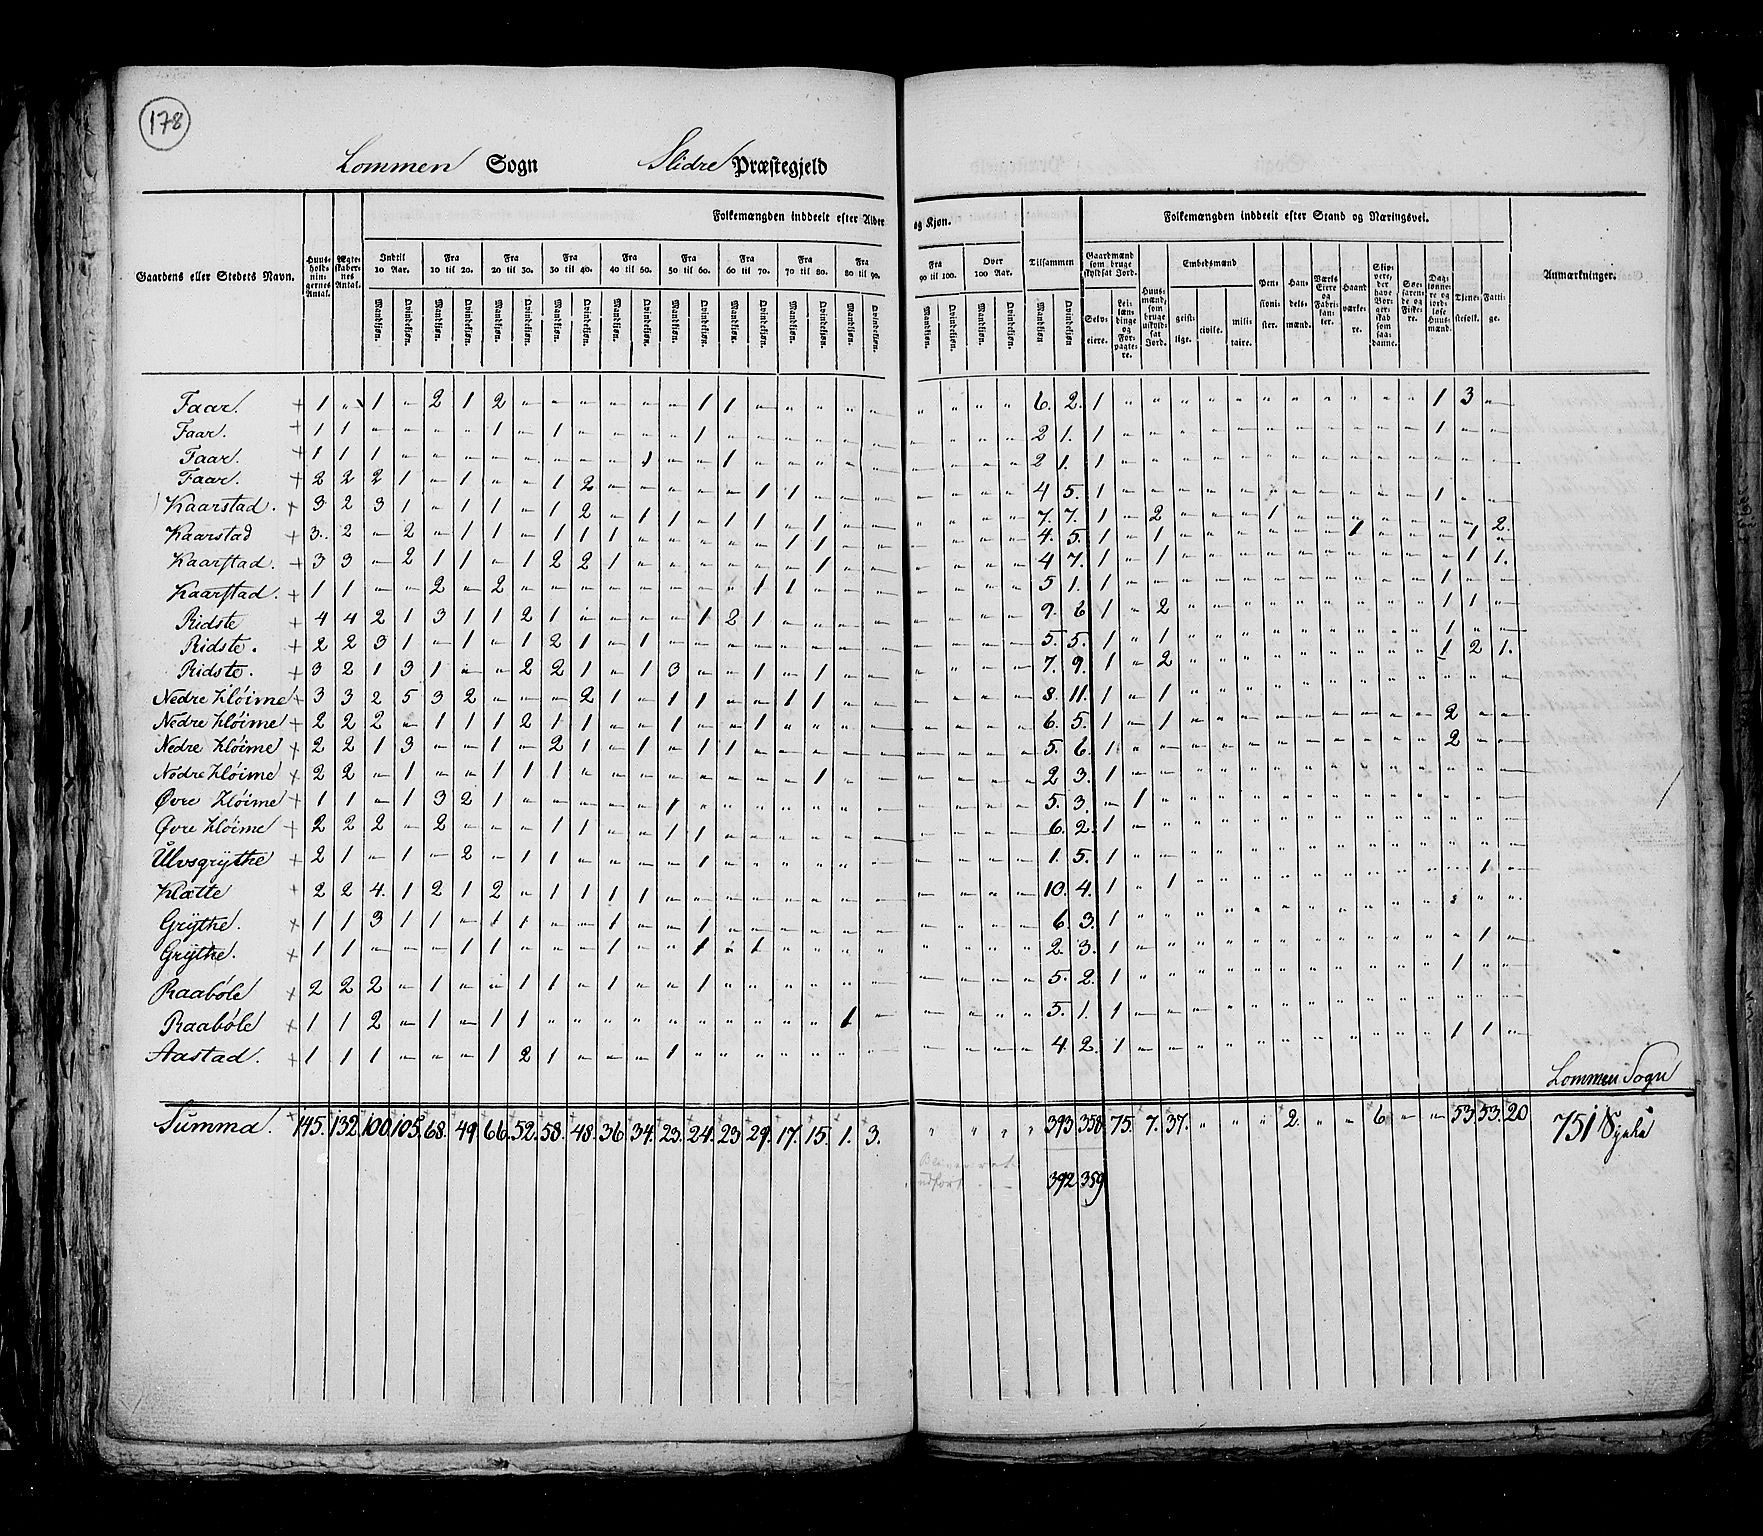 178
Lommen Sogn Slidre Præstegjeld
Folkemængden inddeelt efter Alder og Kjøn. Folkemængden inddeelt efter Stand og Næringsvei.
Gaardens eller Stedets Navn. Huus-holdnin-gernes Antal. Ægte-skaber-nes Antal. Indtil 10 Aar. Fra 10 til 20. Fra 20 til 30. Fra 30 til 40. Fra 40 til 50. Fra 50 til 60. Fra 60 til 70. Fra 70 til 80. Fra 80 til 90. Fra 90 til 100. Over 100 Aar. Tilsammen Gaardmænd som bruge skyldsat Jord. Embedsmænd Anmærkninger.
Mandkjøn. Qvindekjøn.
Selv-eiere. Lei-læn-dinge og For-pagte-re. Huus-mænd, som bruge uskyld-sat Jord. geist-lige. civile. mili-taire. Pen-sioni-ster. Han-dels-mænd. Værks Eiere og Fabri-kan-ter. Haand værke-re. Skip-pere, der have Bor-ger-skab som saa-danne. Søe-faren-de og Fiske-re. Dag-lønne-re og jord-løse Huus-mænd. Tjene-stefolk. Fatti-ge.
Faar. 1 1 2 1 2 1 1 6. 2. 1 1 3
Faar. 1 1 1 1 1 2 1. 1 1
Faar. 1 1 1 1 1 2 1. 1
Faar. 2 2 2 1 1 1 2 1 1 4 5. 1 1
Kaarstad. 3 2 3 1 1 1 1 2 1 1 1 1 1 7. 7. 1 2 1 2.
Kaarstad 3. 2 2 1 1 1 1 1 1 1 4. 5. 1 1 1 1
Kaarstad. 3 3 2 1 1 1 2 2 1 1 4 7. 1 1 1 1.
Kaarstad. 1 1 2 2 1 1 5 1. 1 1
Ridste 4 4 2 1 3 1 1 2 1 1 2 1 9. 6 1 2 1 1
Ridste. 2 2 3 1 1 1 2 1 1 5. 5. 1 1 1
Ridste. 3 2 1 3 1 2 2 1 1 3 1 1 7. 9. 1 2 1 2 1.
Nedre Kløime 3 3 2 5 3 2 2 1 1 1 1 1 8. 11. 1 1
Nedre Kløime 2 2 2 1 1 1 2 1 1 1 1 6. 5. 1 1 2
Nedre Kløime 2 2 1 3 1 2 1 1 1 1 5. 6. 1 2
Nedre Kløime 2 2 1 1 1 1 1 2 3. 1
Øvre Kløime 1 1 1 3 2 1 1 5. 3. 1
Øvre Kløime 2 2 2 2 1 1 1 1 6. 2. 1
Ulvsgrythe 2 1 1 2 1 1 1 1. 5. 1 1
Klætte 2 2 4. 1 2 1 2 1 1 1 1 10. 4. 1 1
Grythe. 1 1 3 1 1 1 1 1 1 6. 3. 1
Grythe. 1 1 1 1 1 1 1 2. 3. 1 1
Raabøle 2 2 2 1 1 1 1 1 5. 2. 1 1
Raabøle 1 1 2 1 1 1 1 5. 1. 1
Aastad. 1 1 1 1 2 1 1 4. 2. 1 1 1
Lommen Sogn
Summa. 145. 132. 100. 105. 68. 49. 66. 52. 58. 48. 36. 34. 23. 24. 23. 29. 17. 15. 1. 3. 393 358 75. 7. 37. 2. 6 53. 53. 20 751
392 359